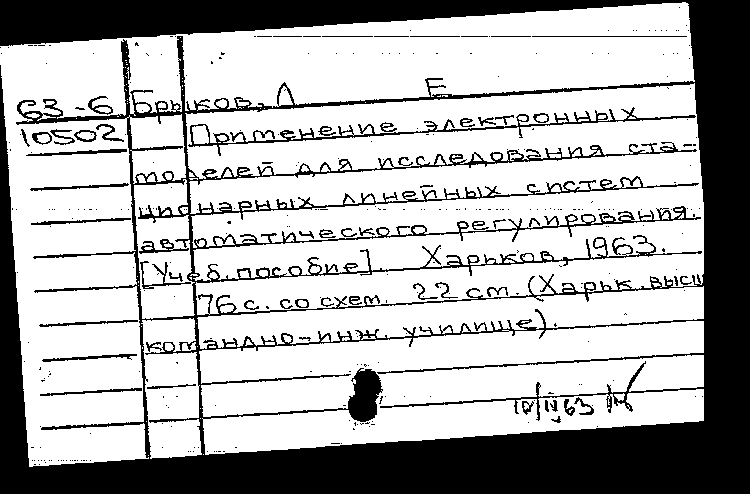 63-6 Брыков, Л Е
10502 Применение электронных
моделей для исследования ста=
ционарных линейных систем
автоматического регулирования.
[Учеб. пособие]. Харьков, 1963.
76 с. со схем. 22 см. (Харьк. высш
командно-инж. училище).
10/IV 63